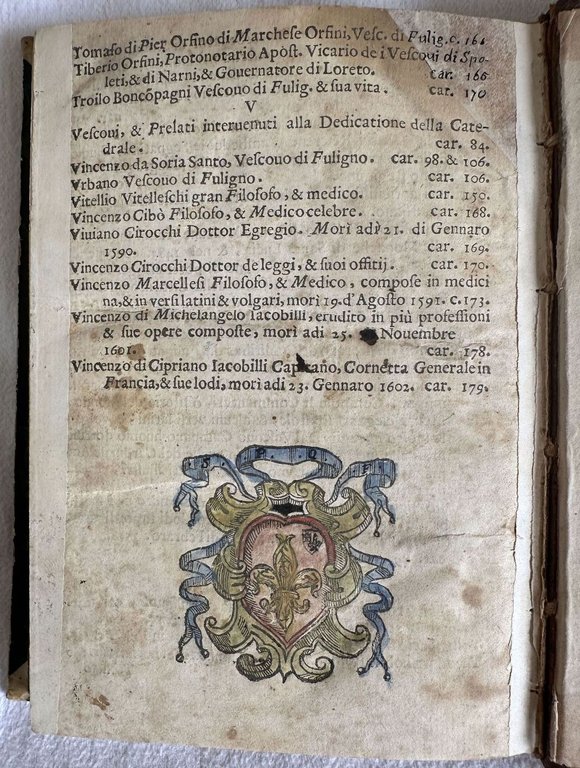 Tomaso di Pier Orsino di Marchese Orsini, Vesc. di Fulig. c. 161
Tiberio Orsini, Protonotario Apost. Vicario de i Vescoui di Spo-
leti, & di Narni, & Gouernatore di Loreto. car. 166
Troilo Boncõpagni Vescouo di Fulig. & sua vita. car. 170
V
Vescoui, & Prelati interuenuti alla Dedicatione della Cate-
drale. car. 84.
Vincenzo da Soria Santo, Vescouo di Fuligno. car. 98. & 106.
Vrbano Vescouo di Fuligno. car. 106.
Vitellio Vitelleschi gran Filosofo, & medico. car. 150.
Vincenzo Cibò Filosofo, & Medico celebre. car. 168.
Viuiano Cirocchi Dottor Egregio. Morì adì 21. di Gennaro
1590. car. 169.
Vincenzo Cirocchi Dottor de leggi, & suoi offitij. car. 170.
Vincenzo Marcellesi Filosofo, & Medico, compose in medici
na, & in versi latini & volgari, morì 19. d'Agosto 1591. c. 173.
Vincenzo di Michelangelo Iacobilli, erudito in più professioni
& sue opere composte, morì adi 25. Nouembre
1601. car. 178.
Vincenzo di Cipriano Iacobilli Capitano, Cornetta Generale in
Francia, & sue lodi, morì adi 23. Gennaro 1602. car. 179.
S P Q F